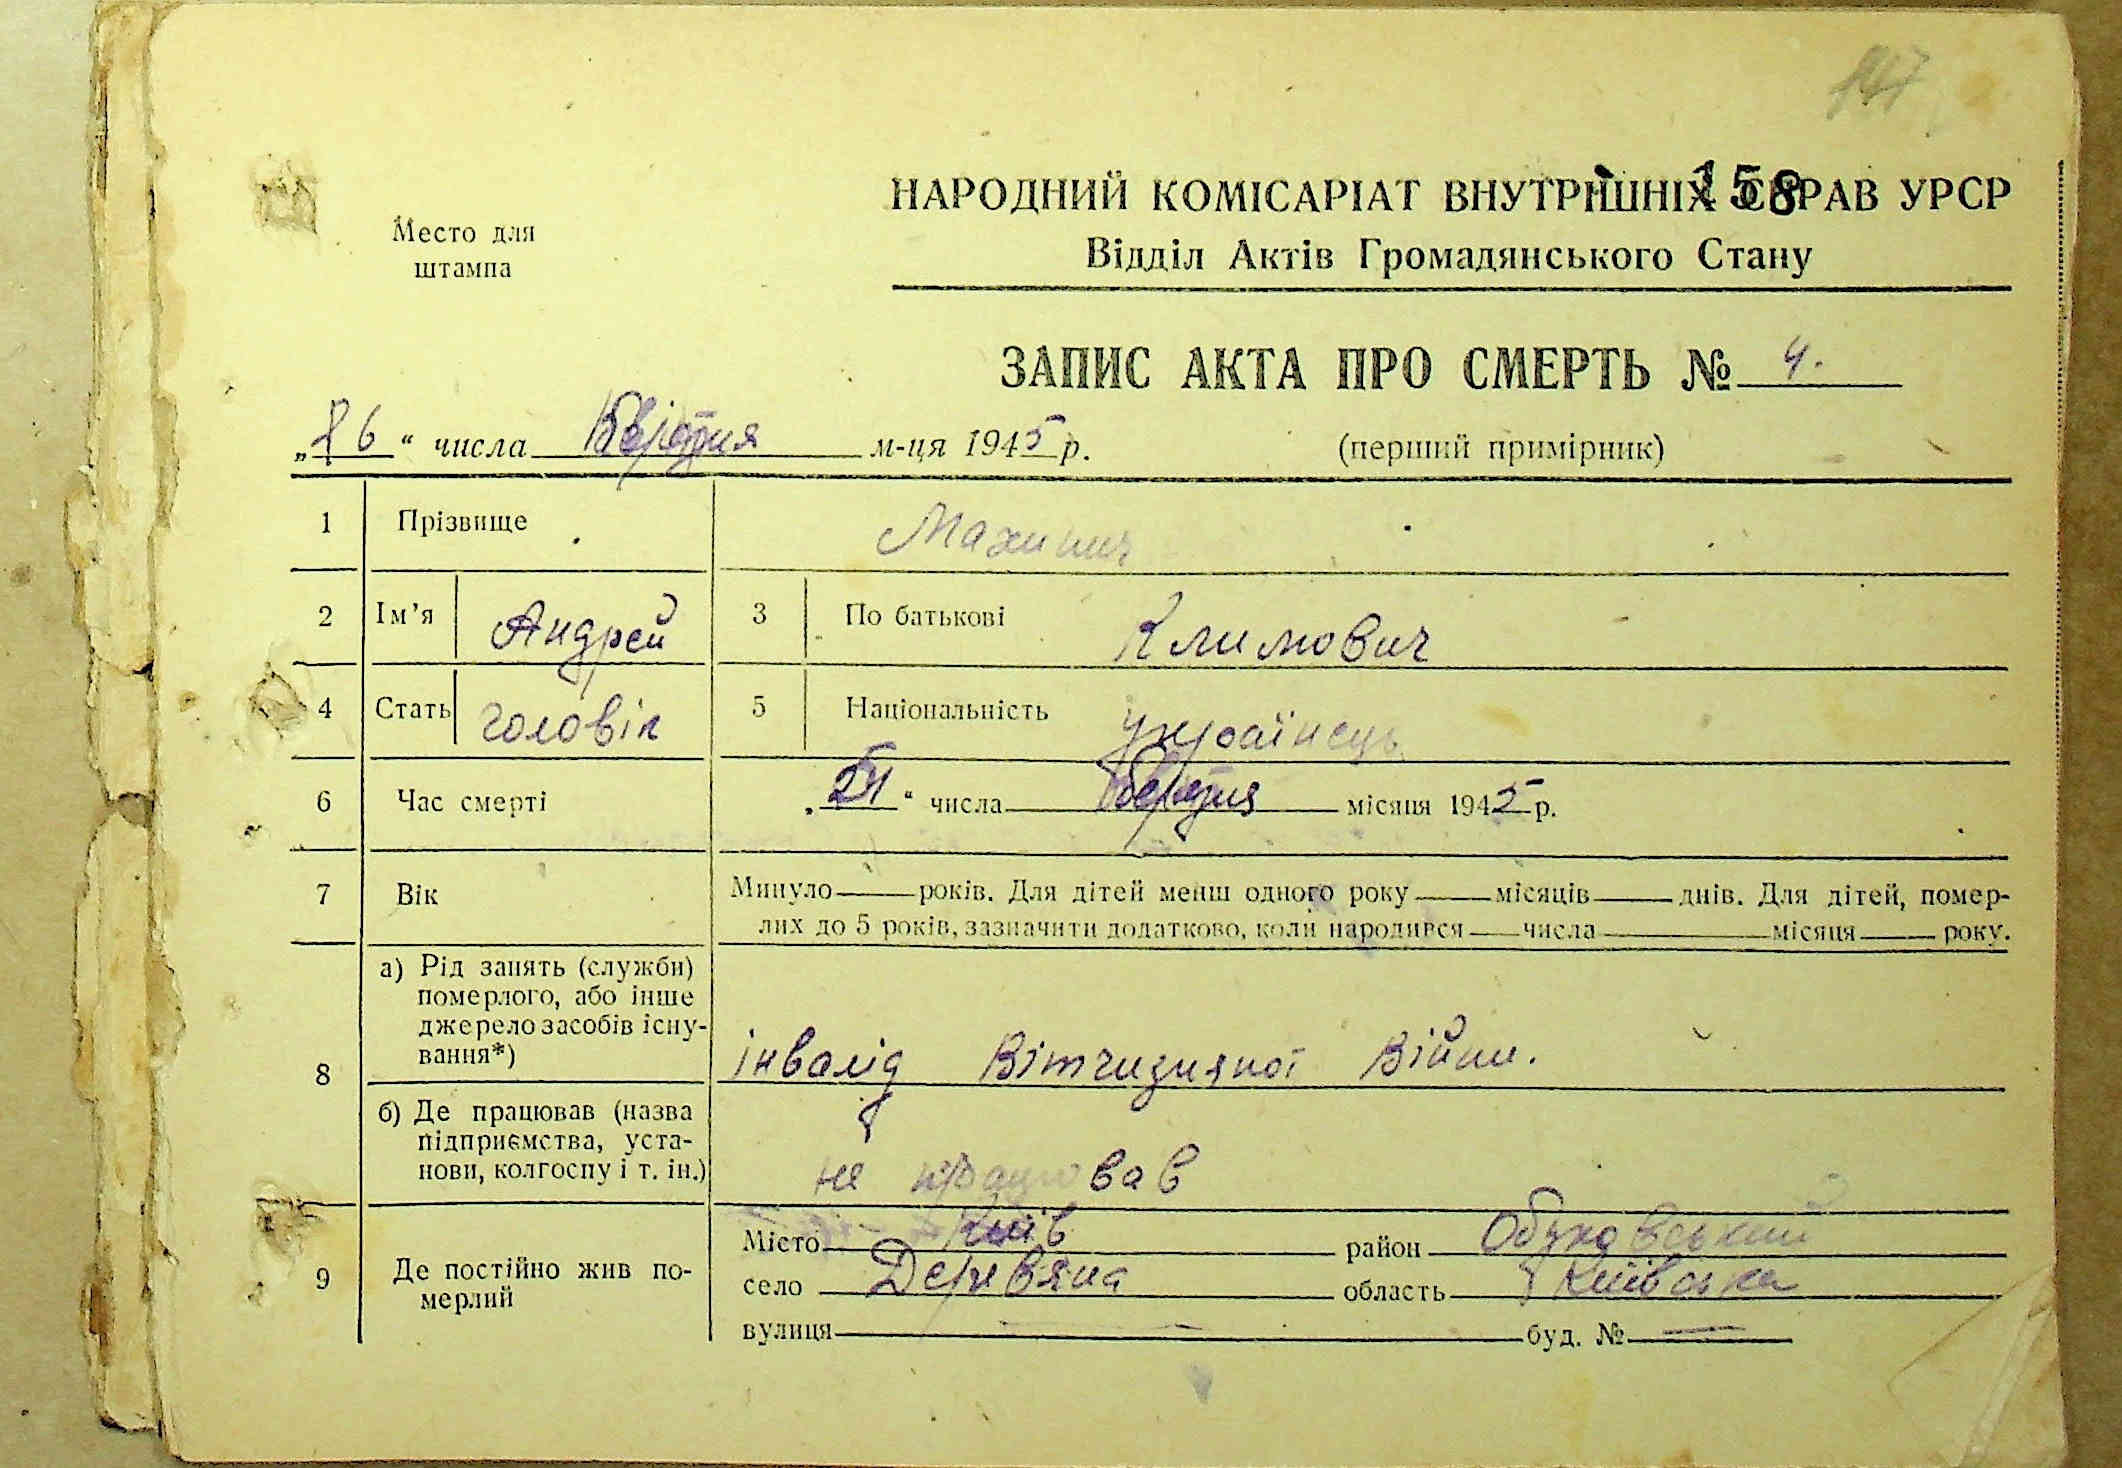 147
158
Место для
штампа
НАРОДНИЙ КОМІСАРІАТ ВНУТРІШНІХ СПРАВ УРСР
Відділ Актів Громадянського Стану
ЗАПИС АКТА ПРО СМЕРТЬ № 4.
„26“ числа м-ця 1945 р. (перший примірник)
1 Прізвище Махинич
2 Ім’я Андрей 3 По батькові Климович
4 Стать головік 5 Національність українець
6 Час смерті „ “ числа місяця 1945 р.
7 Вік Минуло років. Для дітей менш одного року місяців днів. Для дітей, помер-
лих до 5 років, зазначити додатково, коли народився числа місяця року.
8 а) Рід занять (служби)
померлого, або інше
джерело засобів існу-
вання*)
інвалід Вітчизняної Війни.
б) Де працював (назва
підприємства, уста-
нови, колгоспу і т. ін.)
не працював
9 Де постійно жив по-
мерлий
Місто Київ район Обуховський
село Дерев'яна область Київська
вулиця — буд. № —